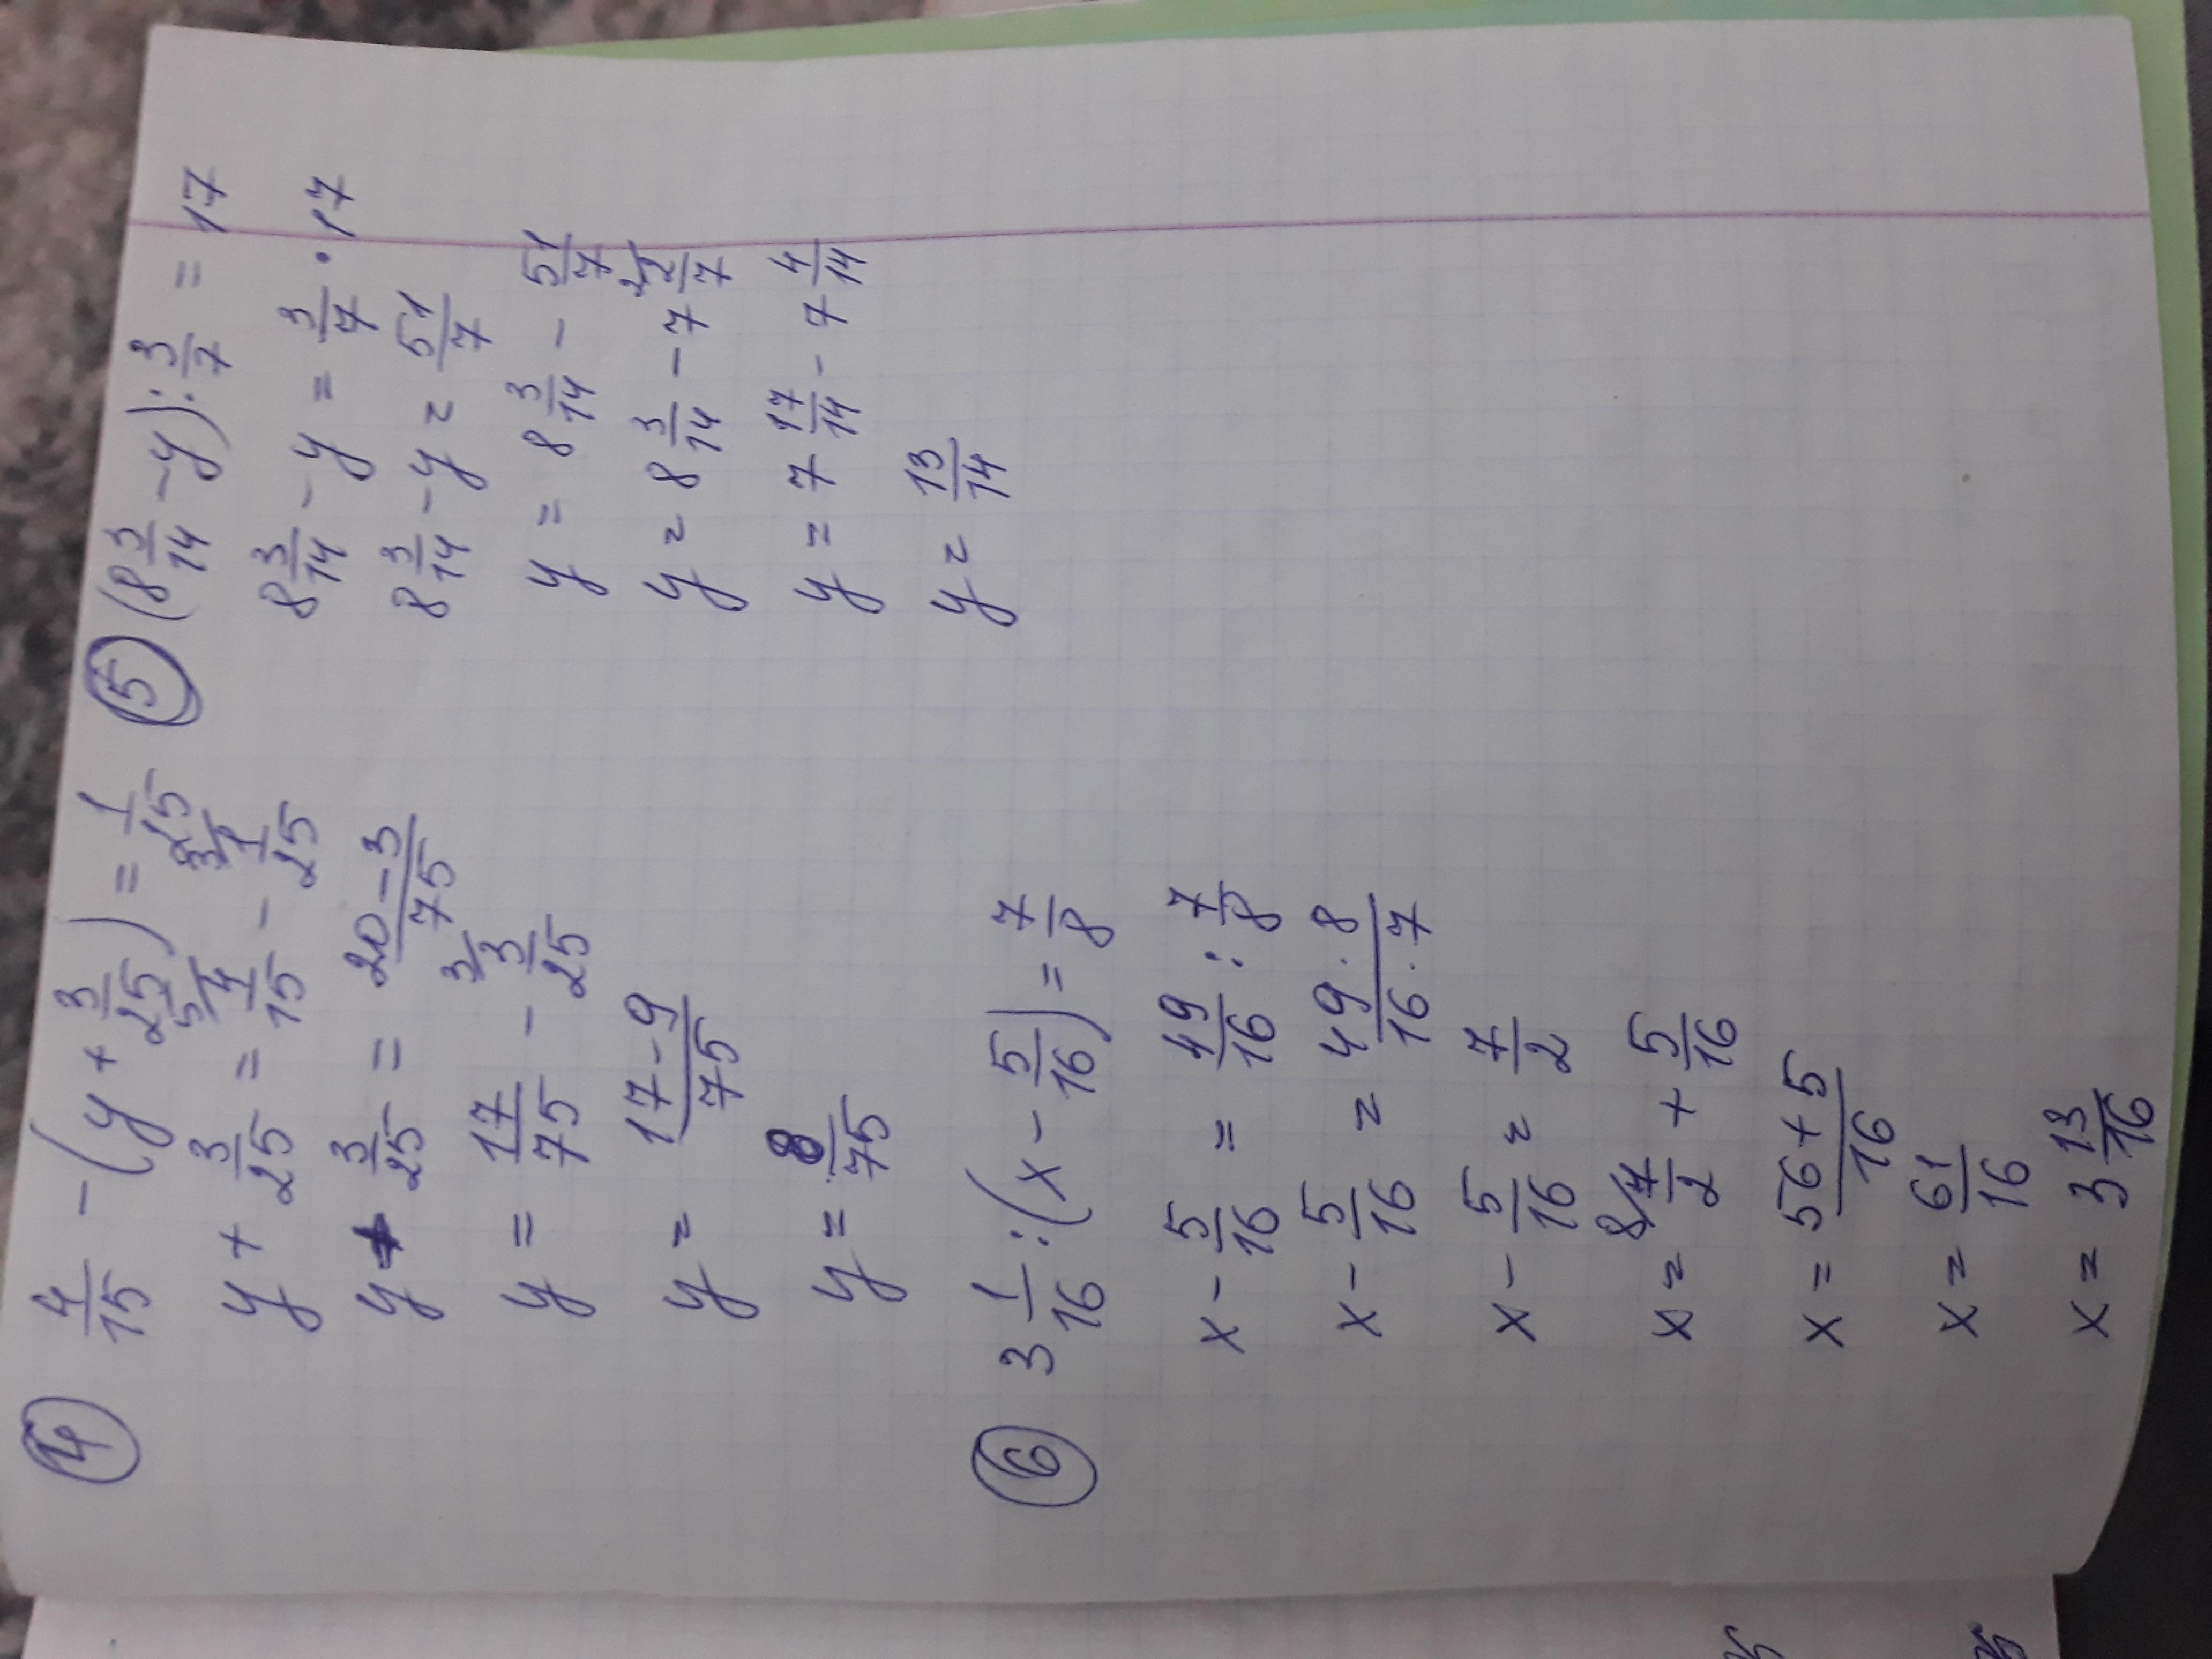 ④ 4/15 - (y + 3/25) = 1/25
y + 3/25 = 5/ 4/15 - 3/ 1/25
y + 3/25 = (20-3)/75
y = 17/75 - 3/ 3/25
y = (17-9)/75
y = 8/75
⑤ (8 3/14 - y) : 3/7 = 17
8 3/14 - y = 3/7 · 17
8 3/14 - y = 51/7
y = 8 3/14 - 51/7
y = 8 3/14 - 7 2/ 2/7
y = 7 17/14 - 7 4/14
y = 13/14
⑥ 3 1/16 : (x - 5/16) = 7/8
x - 5/16 = 49/16 : 7/8
x - 5/16 = (49 · 8)/(16 · 7)
x - 5/16 = 7/2
x = 8/ 7/2 + 5/16
x = (56+5)/16
x = 61/16
x = 3 13/16